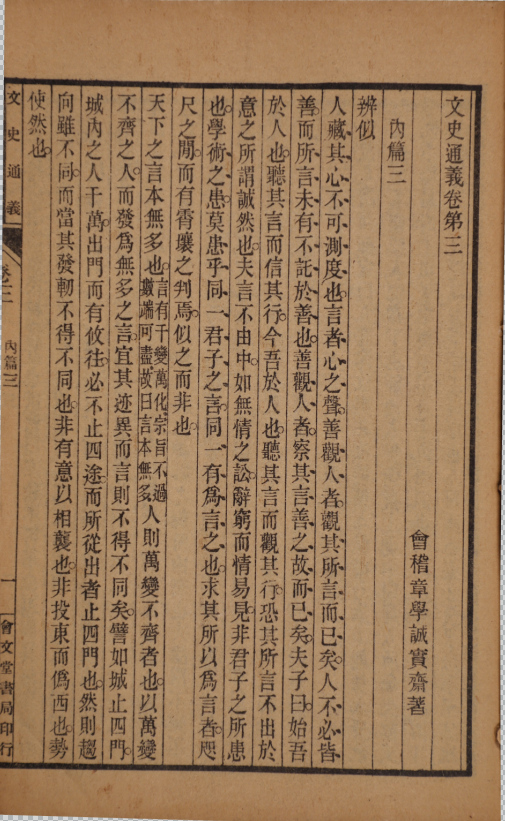 文史通義卷第三
會稽章學誠實齋著
內篇三
辨似
人藏其心不可測度也言者心之聲善觀人者觀其所言而已矣人不必皆
善而所言未有不託於善也善觀人者察其言善之故而已矣夫子曰始吾
於人也聽其言而信其行今吾於人也聽其言而觀其行恐其所言不出於
意之所謂誠然也夫言不由中如無情之訟辭窮而情易見非君子之所患
也學術之患莫患乎同一君子之言同一有爲言之也求其所以爲言者咫
尺之閒而有霄壤之判焉似之而非也
天下之言本無多也言有千變萬化宗旨不過數端可盡故曰言本無多人則萬變不齊者也以萬變
不齊之人而發爲無多之言宜其迹異而言則不得不同矣譬如城止四門
城內之人千萬出門而有攸往必不止四途而所從出者止四門也然則趨
向雖不同而當其發軔不得不同也非有意以相襲也非投東而僞西也勢
使然也
文史通義 卷三 內篇三 一 會文堂書局印行